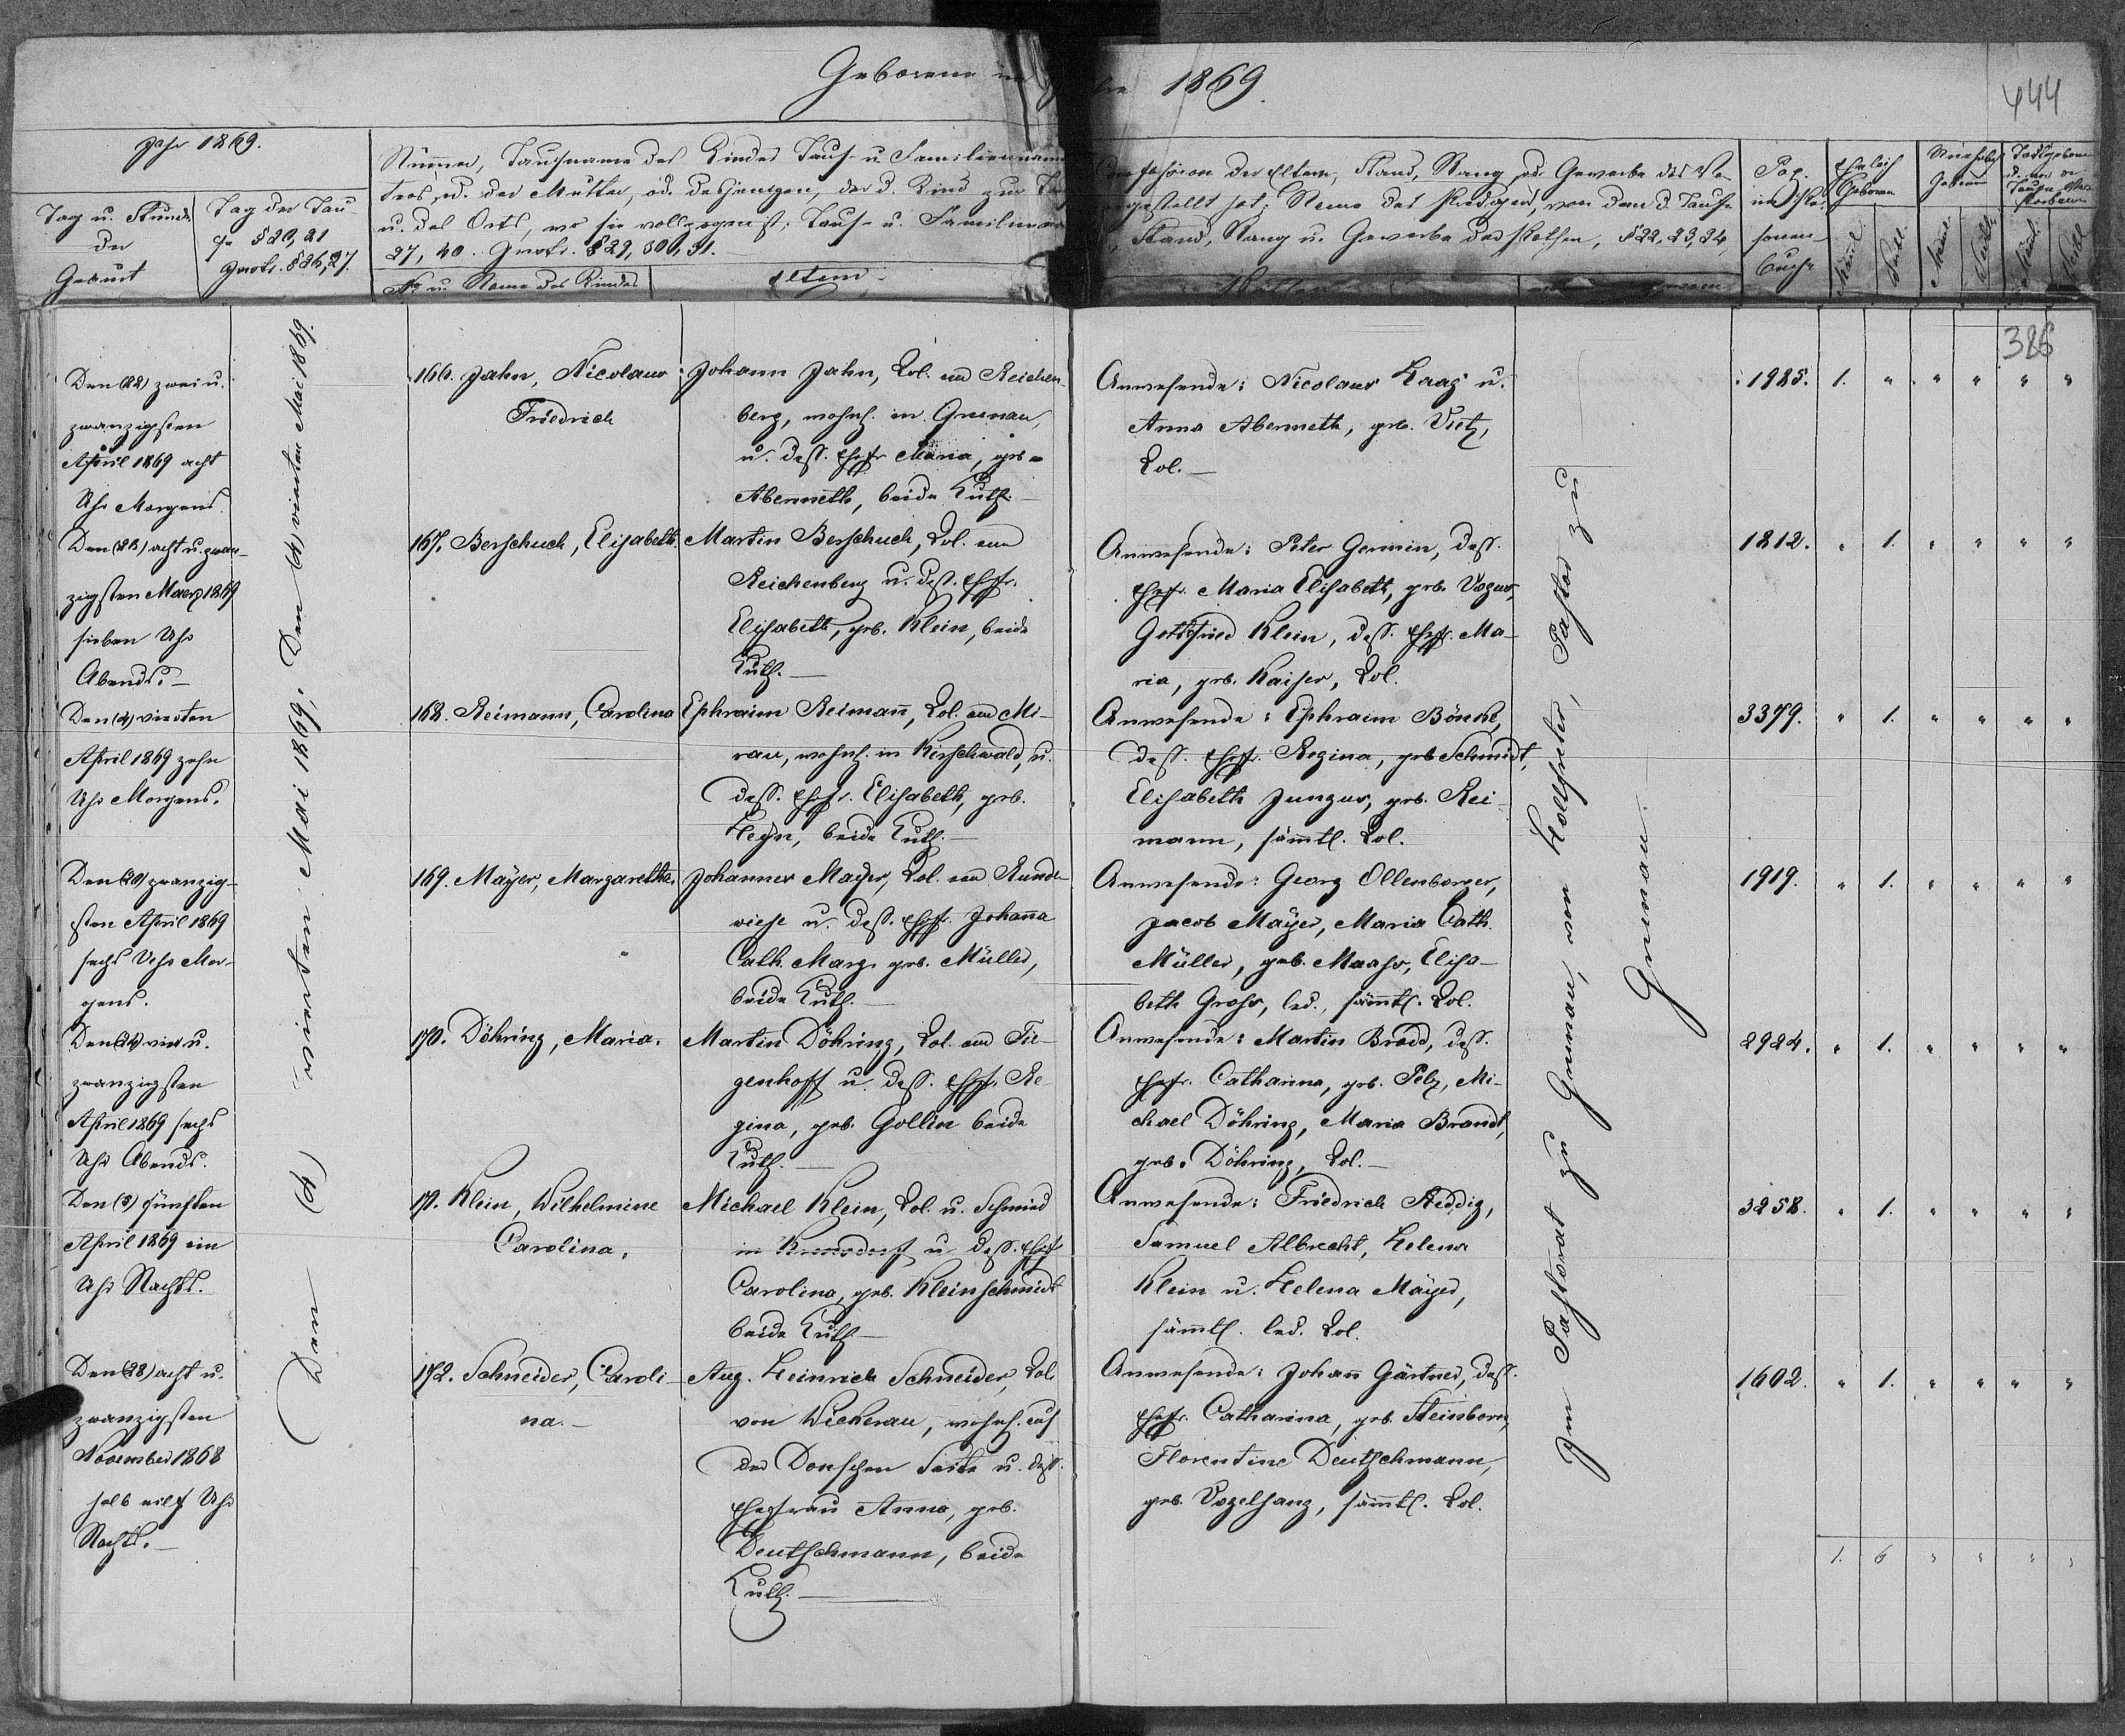 Geborene im Jahre 1869.
444
Jahr 1869.
Tag u. Stunde
der
Geburt
Tag der Tau-
fe § 20, 21
Instr. § 26, 27.
Nummer, Taufname des Kindes Tauf- u. Familienname
u. des Orts, wo sie vollzogen ist; Tauf- u. Familienname
27, 40. Instr. § 29, 30, 31.
No u. Name des Kindes
Eltern
Confession der Eltern, Stand, Rang od. Gewerbe des Va-
gestellt hat; Name des Predigers, von dem d. Taufe
Stand, Rang u. Gewerbe der Pathen, § 22, 23, 24,
Pag.
im Per-
sonen-
Buche
Ehelich
Geboren
Unehelich
Geboren
Todtgeboren
Männl.
Weibl.
Männl.
Weibl.
Männl.
Weibl.
386
Den (22) zwei u.
zwanzigsten
April 1869 acht
Uhr Morgens.
Den (4) vierten Mai 1869; Den (4) vierten Mai 1869.
166. Jahn, Nicolaus
Friedrich
Johann Jahn, Col. aus Reichen-
berg, wohnh. in Grunau,
u. dess. Ehefr. Maria, geb.
Abenneth, beide Luth.
Anwesende: Nicolaus Haag u.
Anna Abenneth, geb. Vietz,
Col.
1925. 1. " " " " "
Den (28) acht u. zwan-
zigsten Maerz 1869
sieben Uhr
Abends.
167. Berschuck, Elisabeth.
Martin Berschuck, Col. aus
Reichenberg u. dess. Ehefr.
Elisabeth, geb. Klein, beide
Luth.
Anwesende: Peter Germin, dess.
Ehefr. Maria Elisabeth, geb.
Gottfried Klein, dess. Ehefr. Ma-
ria, geb. Kaiser, Col.
1812. " 1. " " " "
Den (4) vierten
April 1869 zehn
Uhr Morgens.
168. Reimann, Carolina
Ephraim Reimann, Col. aus Mi-
rau, wohnh. in Kirschwald, u.
dess. Ehefr. Elisabeth, geb.
Heyn, beide Luth.
Anwesende: Ephraim Bönke,
dess. Ehefr. Regina, geb. Schmidt,
Elisabeth Jungus, geb. Rei-
mann, sämmtl. Col.
3379. " 1. " " " "
Den (20) zwanzig-
sten April 1869
sechs Uhr Mor-
gens.
169. Mayer, Margaretha.
Johannes Mayer, Col. aus Runde-
wiese u. dess. Ehefr. Johanna
Cath. Marg. geb. Müller,
beide Luth.
Anwesende: Georg Ollenberger,
Jacob Mayer, Maria Cath.
Müller, geb. Maass, Elisa-
beth Gross, led., sämmtl. Col.
1919. " 1. " " " "
Den (24) vier u.
zwanzigsten
April 1869 sechs
Uhr Abends.
170. Döhring, Maria.
Martin Döhring, Col. aus Tie-
genhoff u. dess. Ehefr. Re-
gina, geb. Gollin beide
Luth.
Anwesende: Martin Bradd, dess.
Ehefr. Catharina, geb. Pelz, Mi-
chael Döhring, Maria Brandt,
geb. Döhring, Col.
2924. " 1. " " " "
Den (5) fünften
April 1869 ein
Uhr Nachts.
171. Klein, Wilhelmine
Carolina.
Michael Klein, Col. u. Schmied
in Kronsdorf u. dess. Ehefr.
Carolina, geb. Kleinschmidt
beide Luth.
Anwesende: Friedrich Reddig,
Samuel Albrecht, Helena
Klein u. Helena Mayer,
sämmtl. led. Col.
3258. " 1. " " " "
Den (28) acht u.
zwanzigsten
November 1868
halb eilf Uhr
Nachts.
172. Schneider, Caroli-
na.
Aug. Heinrich Schneider, Col.
von Wickerau, wohnh. auf
der Donschen Seite u. dess.
Ehefrau Anna, geb.
Deutschmann, beide
Luth.
Anwesende: Johann Gärtner, dess.
Ehefr. Catharina, geb. Steinborn,
Florentine Deutschmann,
geb. Vogelsang, sämmtl. Col.
1602. " 1. " " " "
Im Pastorat zu Grunau, von Pastor zu
Grunau.
1. 6 " " " "